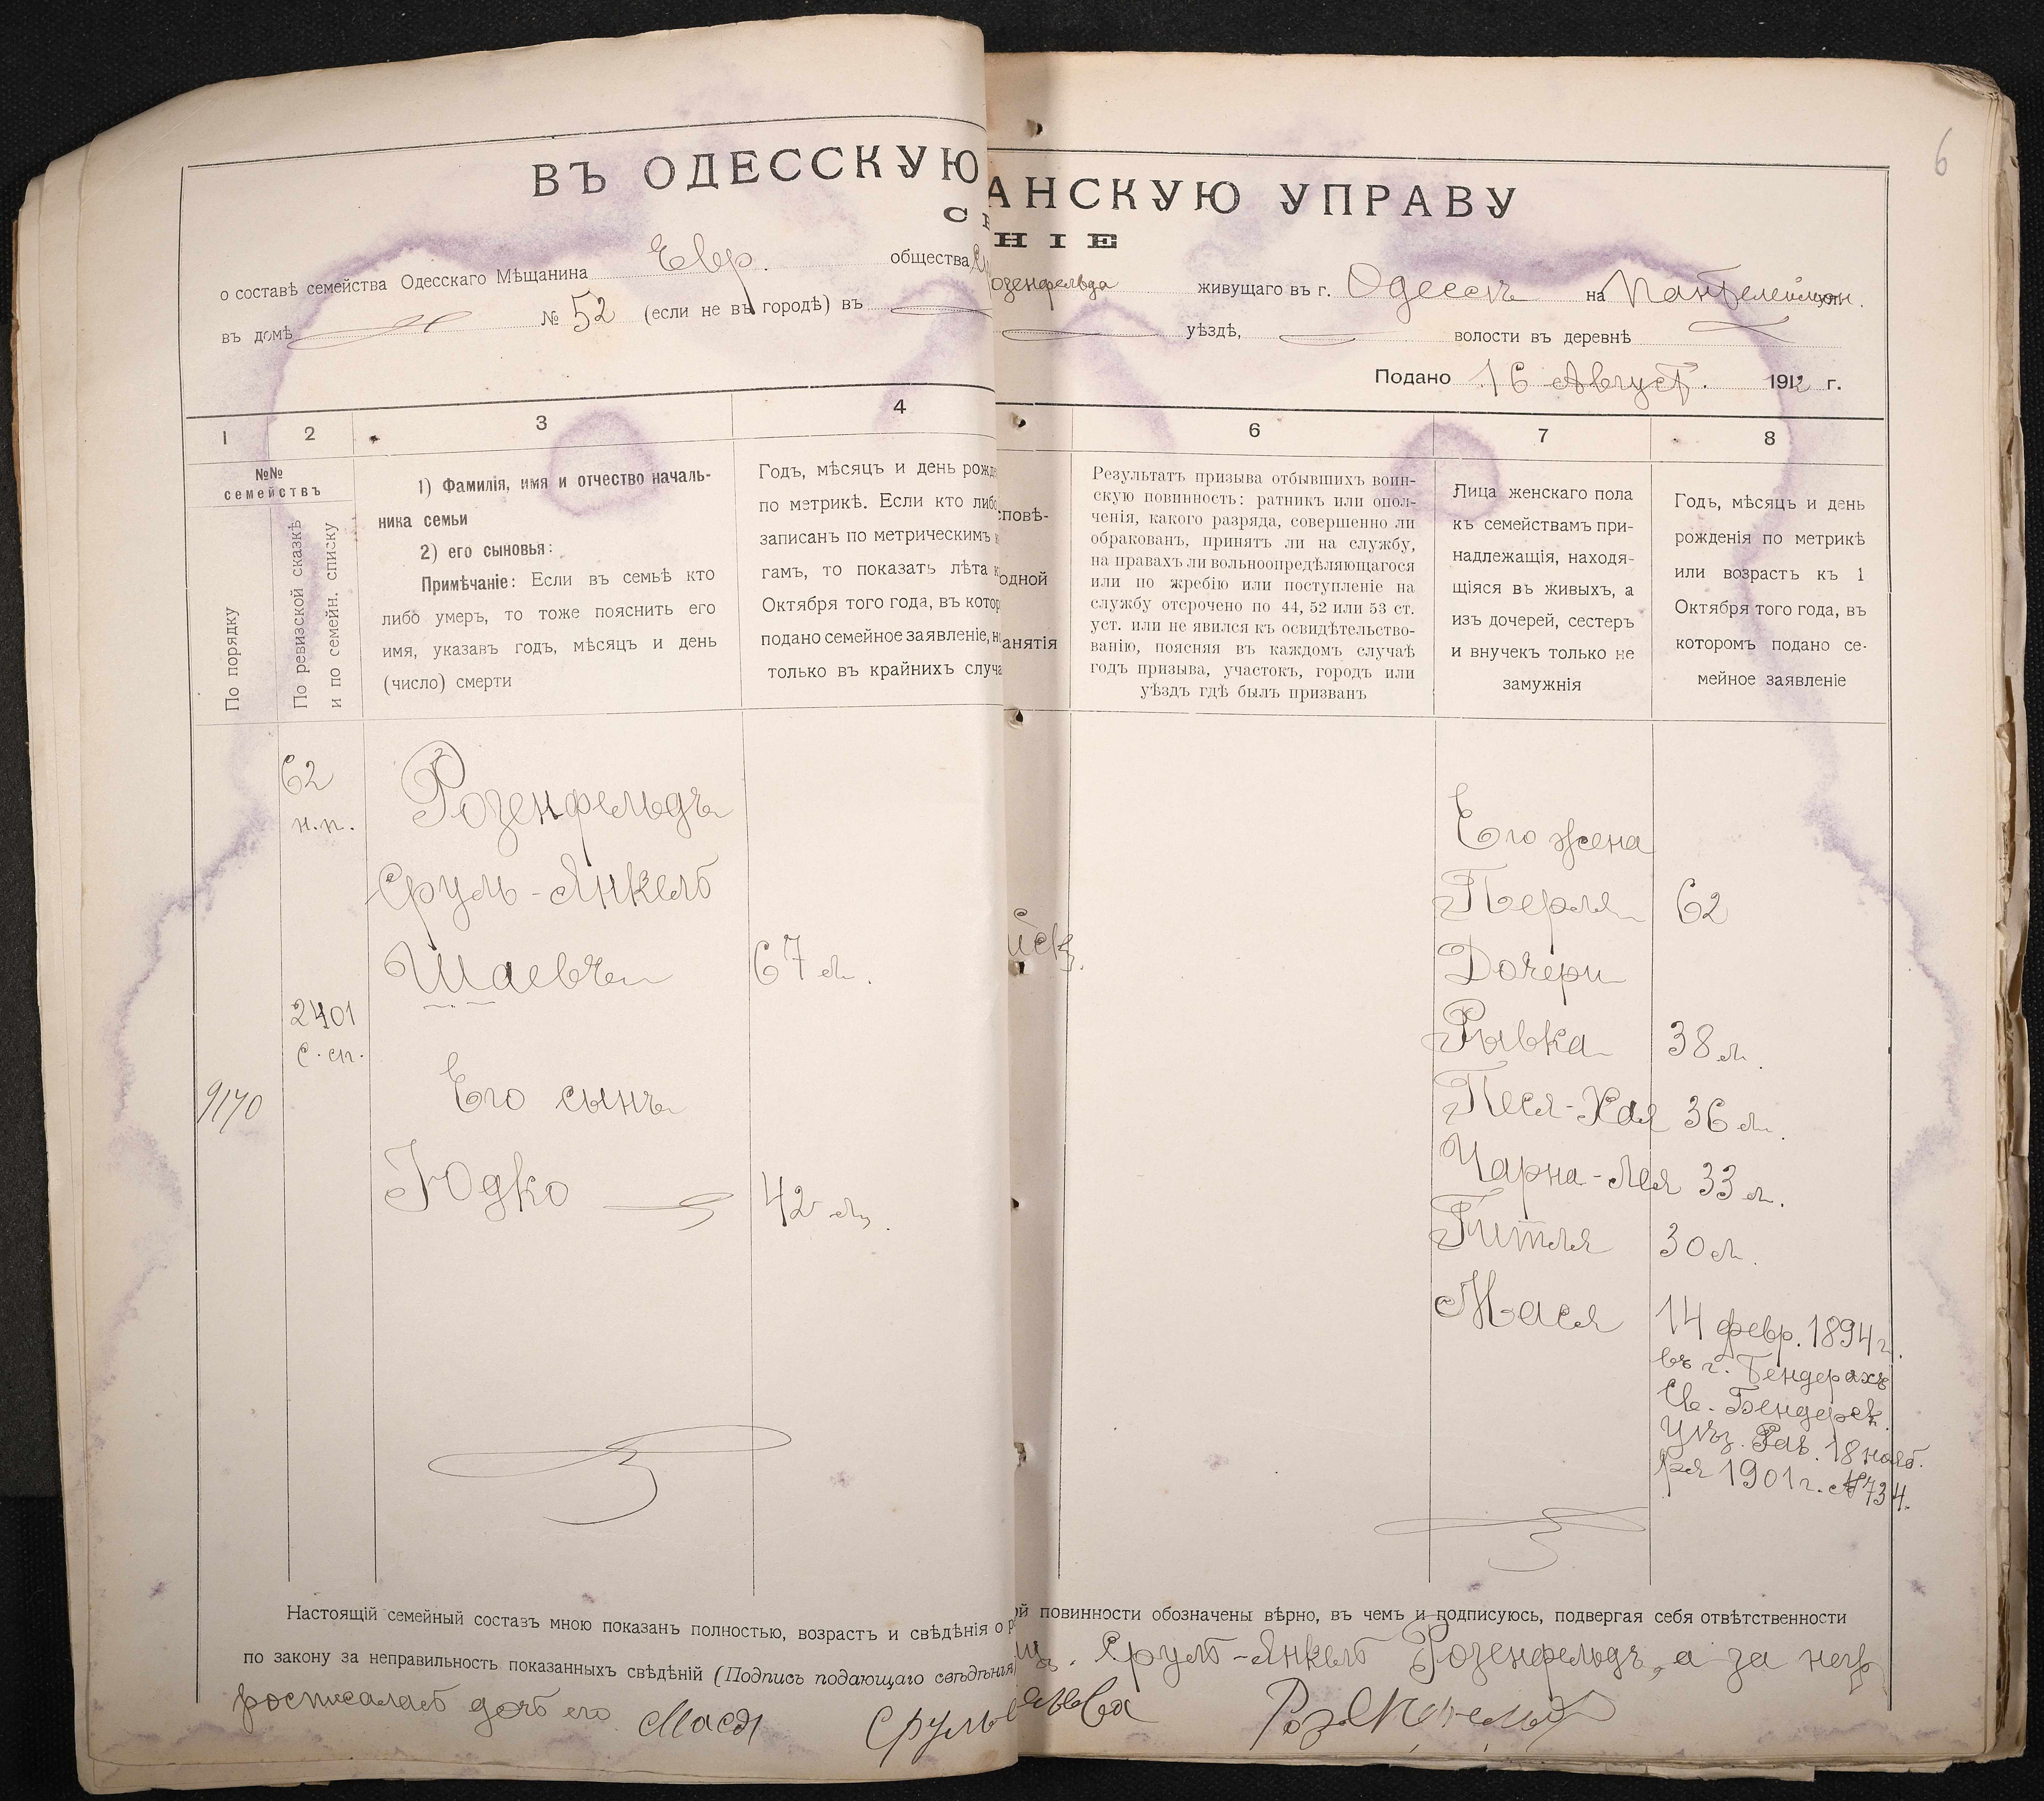 6
ВЪ ОДЕССКУЮ АНСКУЮ УПРАВУ
НІЕ
о составѣ семейства Одесскаго Мѣщанина Евр. общества озенфельда живущаго въ г. Одессѣ на Пантелеймон.
въ домѣ № 52 (если не въ городѣ) въ уѣздѣ, волости въ деревнѣ
Подано 16 Август. 1912 г.
1 2 3 4 6 7 8
№№
семействъ
По порядку
По ревизской сказкѣ
и по семейн. списку
1) Фамилія, имя и отчество началь-
ника семьи
2) его сыновья:
Примѣчаніе: Если въ семьѣ кто
либо умеръ, то тоже пояснить его
имя, указавъ годъ, мѣсяцъ и день
(число) смерти
Годъ, мѣсяцъ и день рожд
по метрикѣ. Если кто либо
записанъ по метрическимъ
гамъ, то показать лѣта к
Октября того года, въ котор
подано семейное заявленіе, но
только въ крайнихъ случа
сповѣ-
одной
анятія
Результатъ призыва отбывшихъ воин-
скую повинность: ратникъ или опол-
ченія, какого разряда, совершенно ли
обракованъ, принятъ ли на службу,
на правахъ ли вольноопредѣляющагося
или по жребію или поступленіе на
службу отсрочено по 44, 52 или 53 ст.
уст. или не явился къ освидѣтельство-
ванію, поясняя въ каждомъ случаѣ
годъ призыва, участокъ, городъ или
уѣздъ гдѣ былъ призванъ
Лица женскаго пола
къ семействамъ при-
надлежащія, находя-
щіяся въ живыхъ, а
изъ дочерей, сестеръ
и внучекъ только не
замужнія
Годъ, мѣсяцъ и день
рожденія по метрикѣ
или возрастъ къ 1
Октября того года, въ
которомъ подано се-
мейное заявленіе
62
н.п.
2401
с. сп.
9170
Розенфельдъ
Сруль-Янкель
Шаевъ 67 л.
Его сынъ
Юдко 42 л.
Его жена
Перля 62
Дочери
Рывка 38 л.
Песя-Хая 36 л.
Чарна-Лея 33 л.
Гитля 30 л.
Мася 14 февр. 1894 г.
въ г. Бендерахъ
Св. Бендерск.
Уѣз. Рав. 18 нояб-
ря 1901 г. №734.
Настоящій семейный составъ мною показанъ полностью, возрастъ и свѣдѣнія о ой повинности обозначены вѣрно, въ чемъ и подписуюсь, подвергая себя отвѣтственности
по закону за неправильность показанныхъ свѣдѣній (Подпись подающаго свѣдѣнія) Сруль-Янкель Розенфельдъ, а за него
росписалась дочь его Мася Сруль Розенфельд